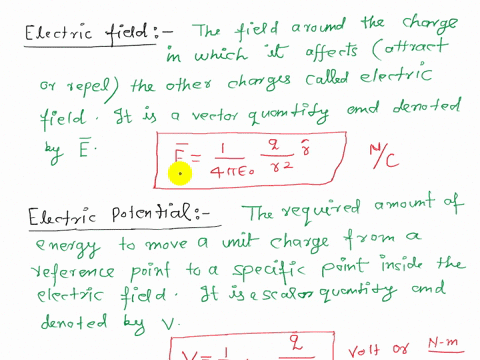 Electric field:- The field around the charge
in which it affects (attract
or repel) the other charges called electric
field. It is a vector quantity and denoted
by E̅.
E̅ = 1/4πε₀ q/r2 r̂ N/C
Electric Potential:- The required amount of
energy to move a unit charge from a
reference point to a specific point inside the
electric field. It is a scalar quantity and
denoted by V.
V = 1 q Volt or N-m